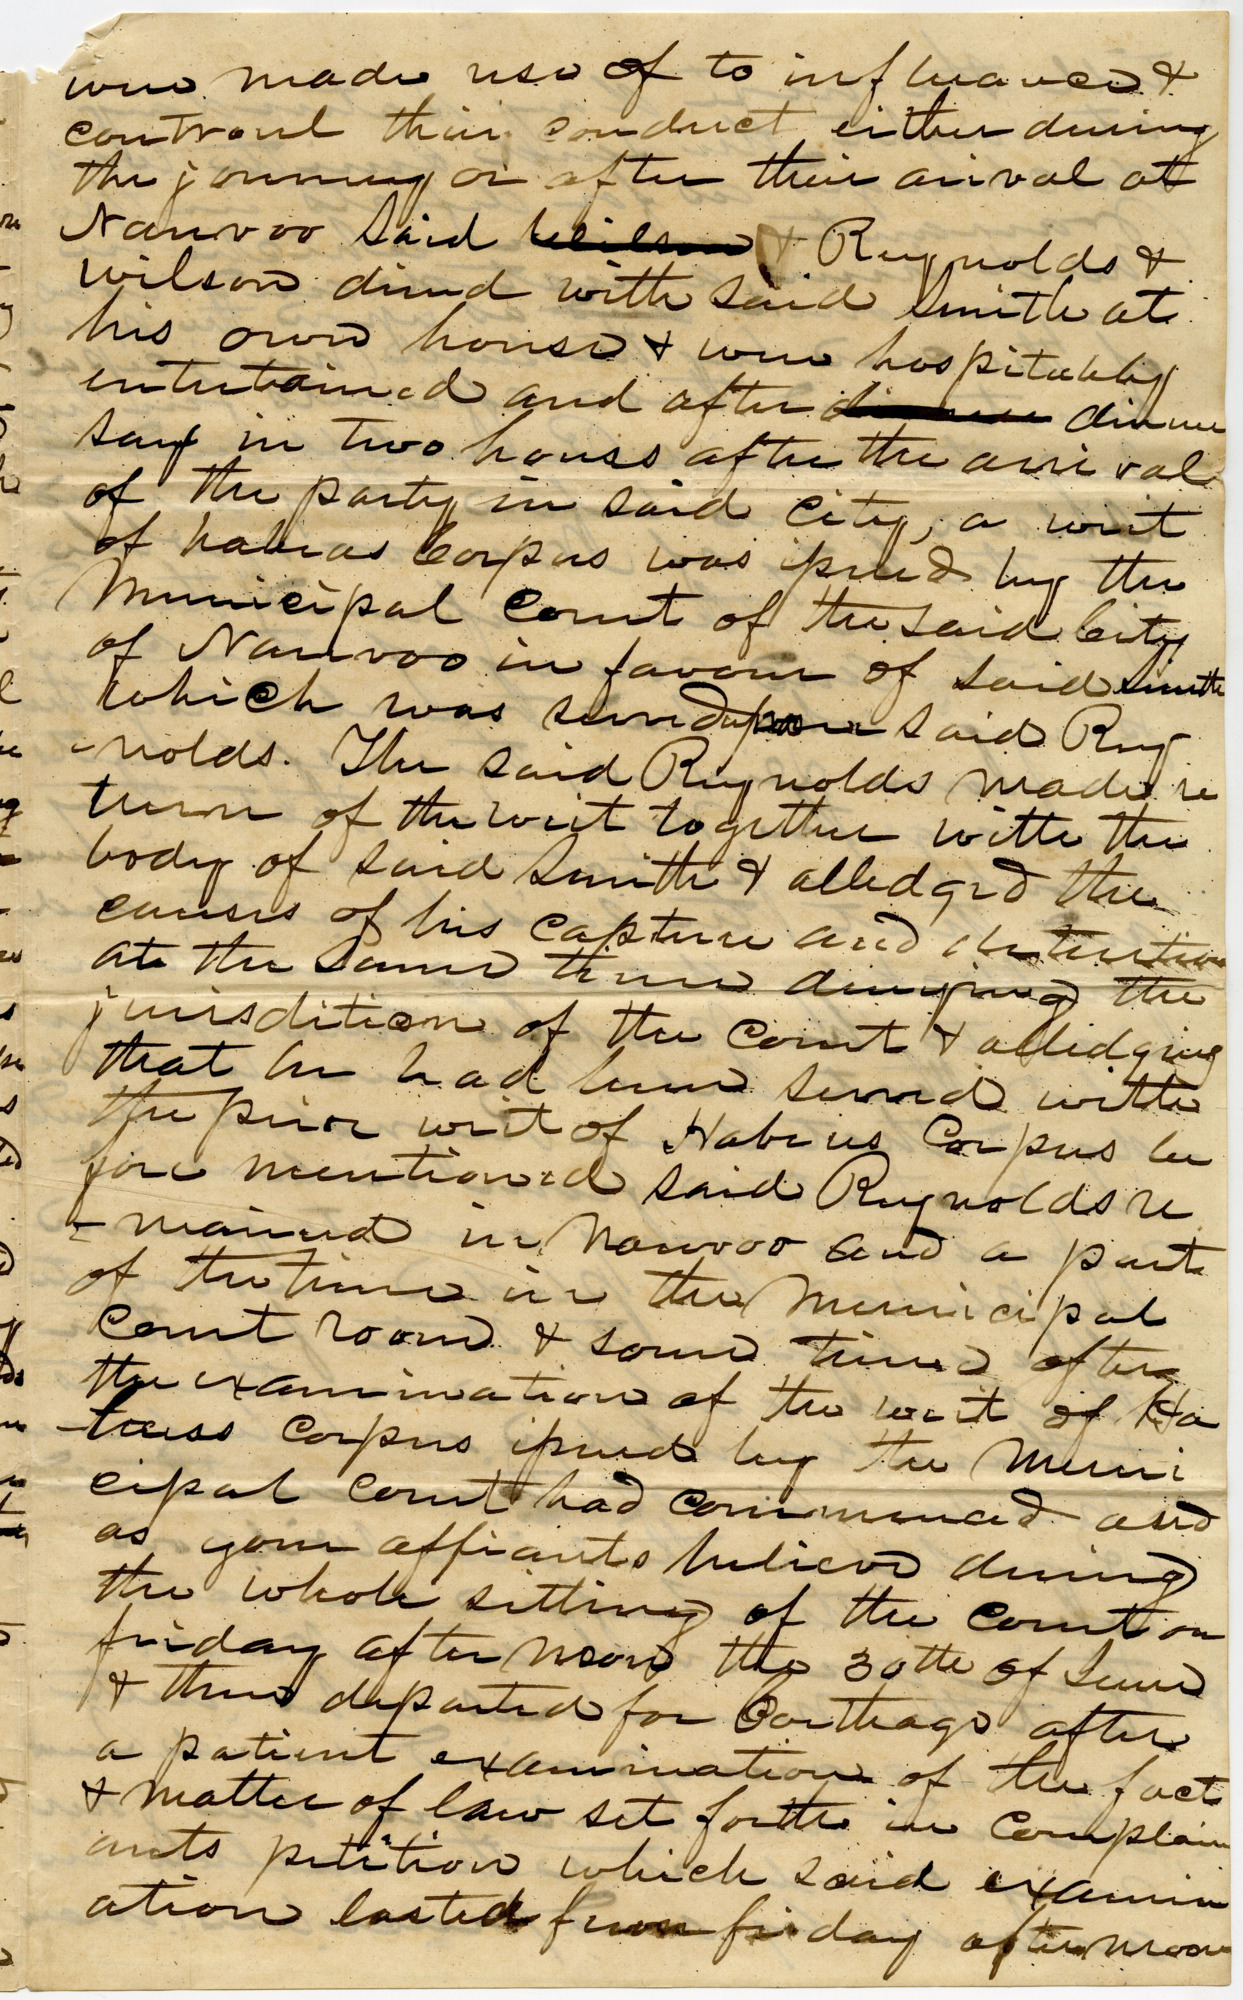 were made use of to influance &
controul their conduct either during
the journey or after their arival at
Nauvoo Said Wilson & Reynolds &
wilson dined with said Smith at
his own house & were hospitably
entertained and after dinner dinner
say in two hours after the arrival
of the party in said city, a writ
of habeas Corpus was issued by the
Municipal Court of the said City
of Nauvoo in favour of said smith
which was served upon said Rey
-nolds. The said Reynolds made re
turn of the writ together with the
body of said Smith & alledged the
causes of his capture and detention
at the same time denying the
jurisdition of the Court & alledging
that he had been served with
the prior writ of Habeus Corpus be
fore mentioned said Reynolds re
-mained in Nauvoo and a part
of the time in the Municipal
Court room & some time after
the examination of the writ of Ha
-beass Corpus issued by the Muni
cipal Court had commenced and
as your affiants believe during
the whole sitting of the Court on
friday after noon the 30th of June
& then departed for Carthage after
a patient examination of the fact
& matter of law set forth in Complain
ants petition which said examin
ation lasted from friday afternoon